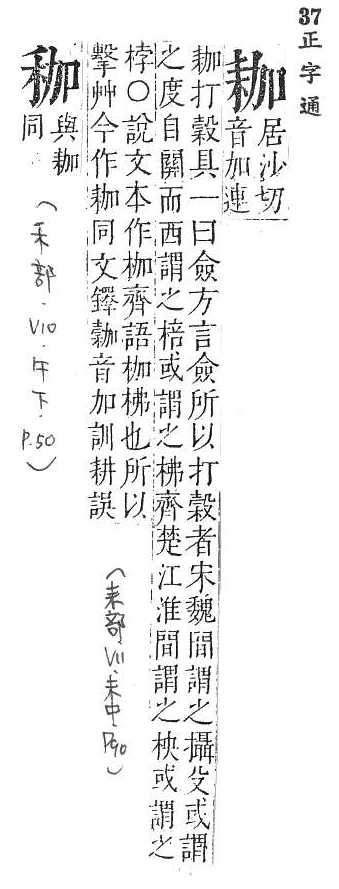 37正字通
耞
居沙切
音加連
耞打穀具一曰僉方言僉所以打穀者宋魏間謂之攝殳或謂
之度自關而西謂之棓或謂之柫齊楚江淮間謂之柍或謂之
桲○說文本作枷齊語枷柫也所以
擊艸今作耞同文鐸音加訓耕誤
（耒部·VII·未中·P90）
與耞
同
（禾部·V10·午下·P.50）